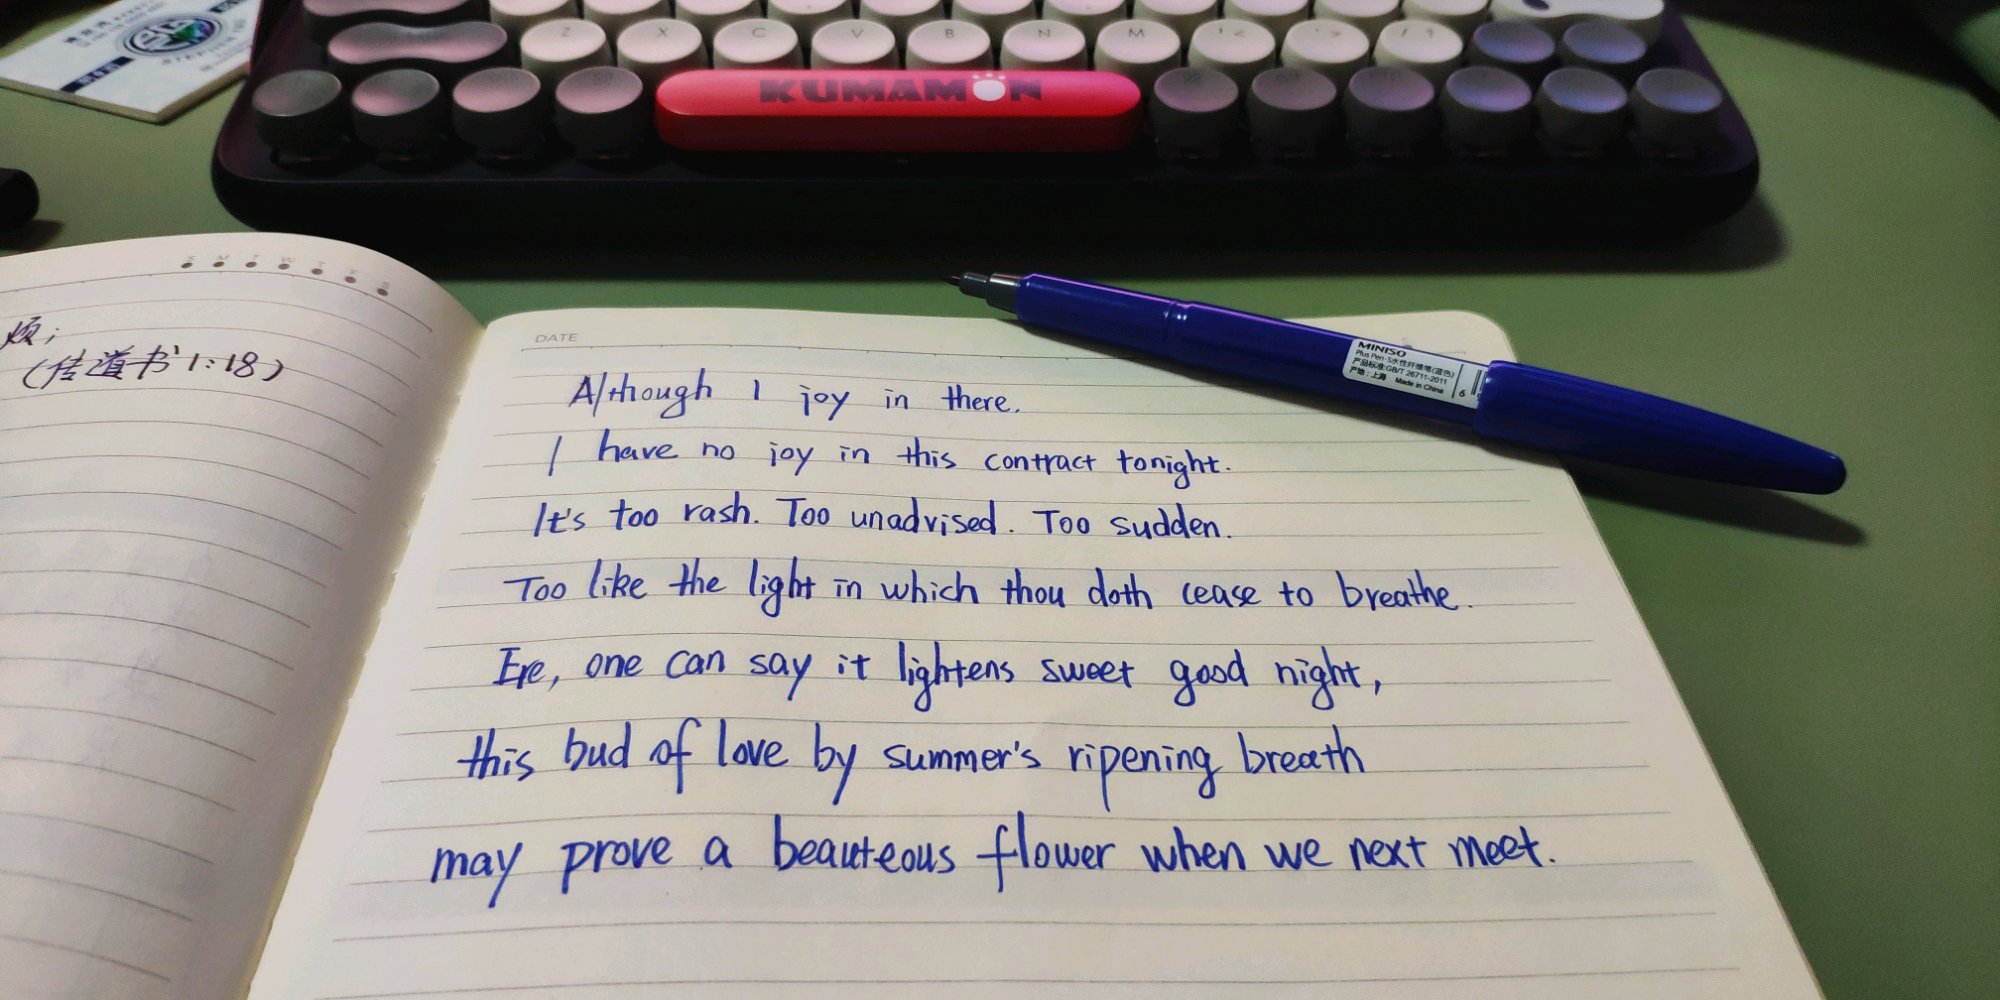 Z X C V B N M
KUMAMON
S M T W T F S
烦;
(传道书1:18)
DATE
MINISO
Plus Pen-S水性纤维笔(蓝色)
产品标准:GB/T 26711-2011
产地:上海 Made in China
6
Although I joy in there.
I have no joy in this contract tonight.
It's too rash. Too unadvised. Too sudden.
Too like the light in which thou doth cease to breathe.
Ere, one can say it lightens sweet good night,
this bud of love by summer's ripening breath
may prove a beauteous flower when we next meet.